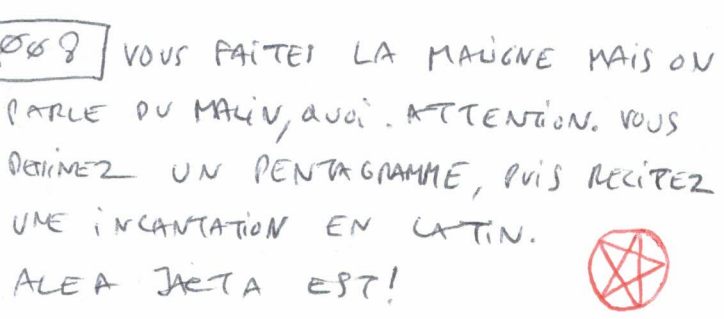 008 VOUS FAITES LA MALIGNE MAIS ON
PARLE DU MALIN, QUOI. ATTENTION. VOUS
DESSINEZ UN PENTAGRAMME, PUIS RECITEZ
UNE INCANTATION EN LATIN.
ALEA JACTA EST!